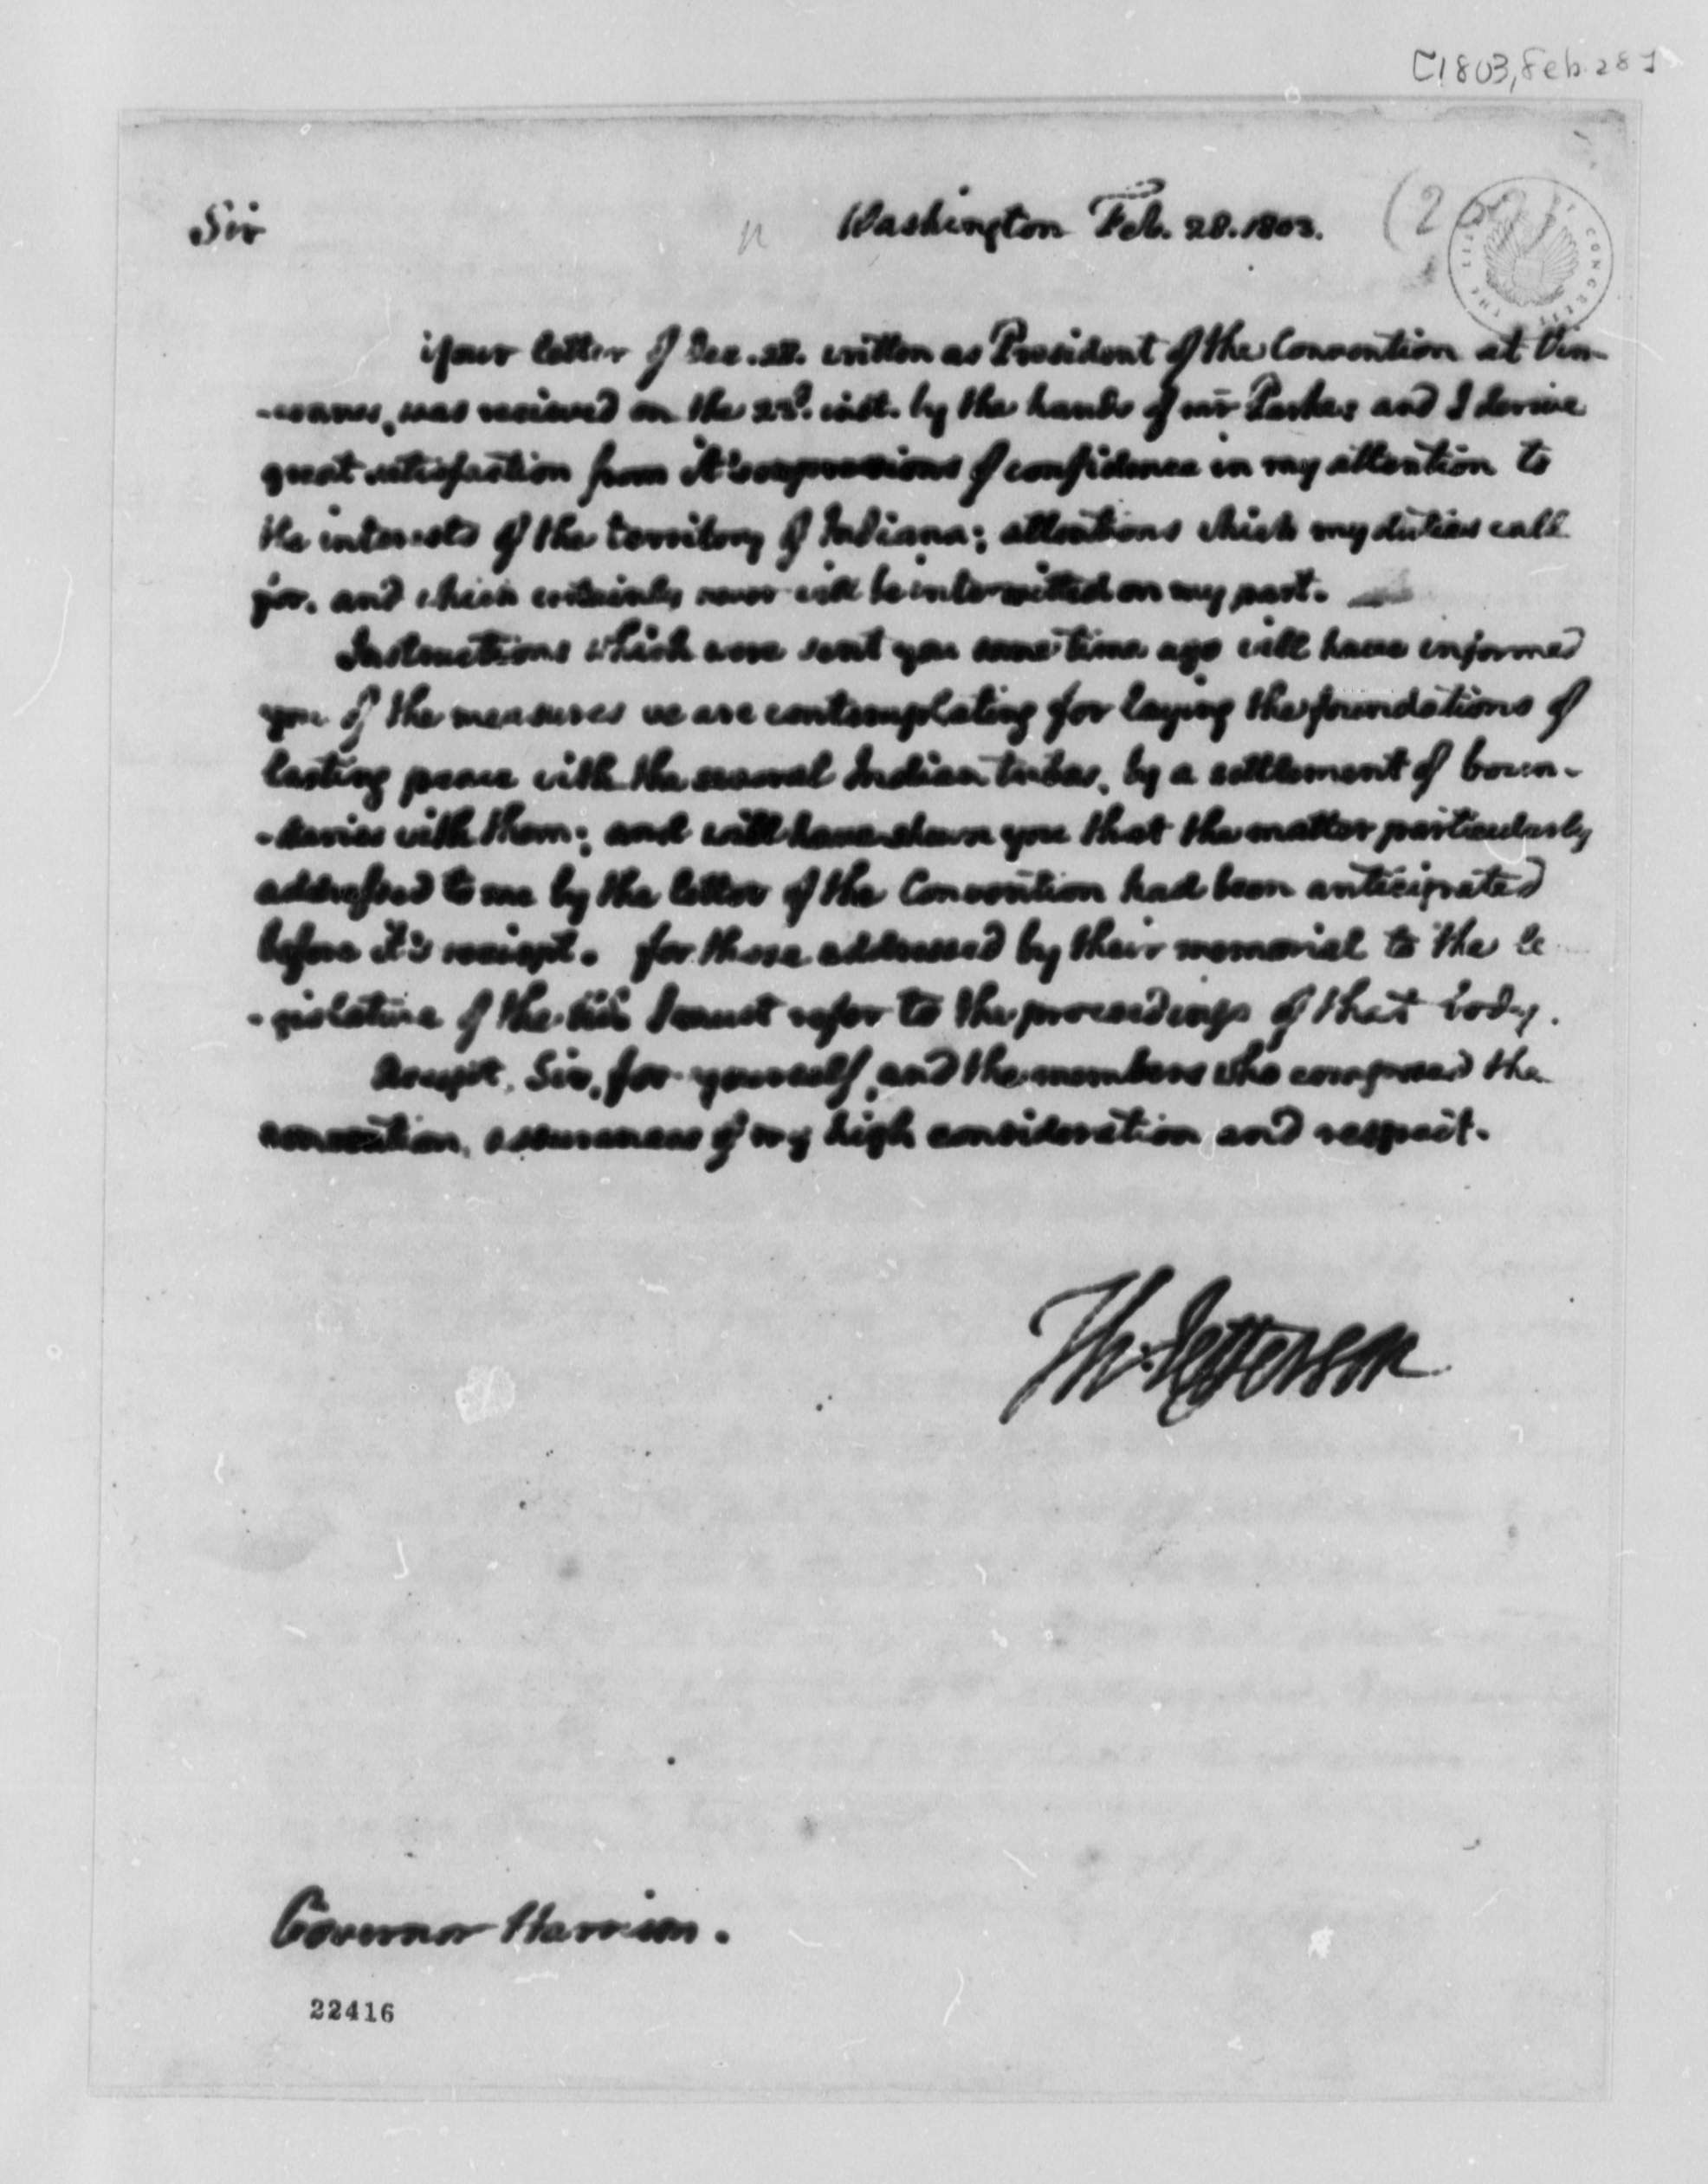 [1803, Feb. 28]
Sir
Washington Feb. 28. 1803.
Your letter of Dec. 28. written as President of the Convention at Vin-
-cennes, was recieved on the 22d. inst. by the hands of mr Parke; and I derive
great satisfaction from it's expressions of confidence in my attention to
the interests of the territory of Indiana; attentions which my duties call
for, and which certainly never will be intermitted on my part.
Instructions which were sent you some time ago will have informed
you of the measures we are contemplating for laying the foundations of
lasting peace with the several Indian tribes, by a settlement of boun-
-daries with them; and will have shewn you that the matter particularly
addressed to me by the letter of the Convention had been anticipated
before it's reciept. for those addressed by their memorial to the le
-gislature of the US. I must refer to the proceedings of that body.
Accept, Sir, for yourself, and the members who composed the
convention, assurances of my high consideration and respect.
Th: Jefferson
Governor Harrison.
22416